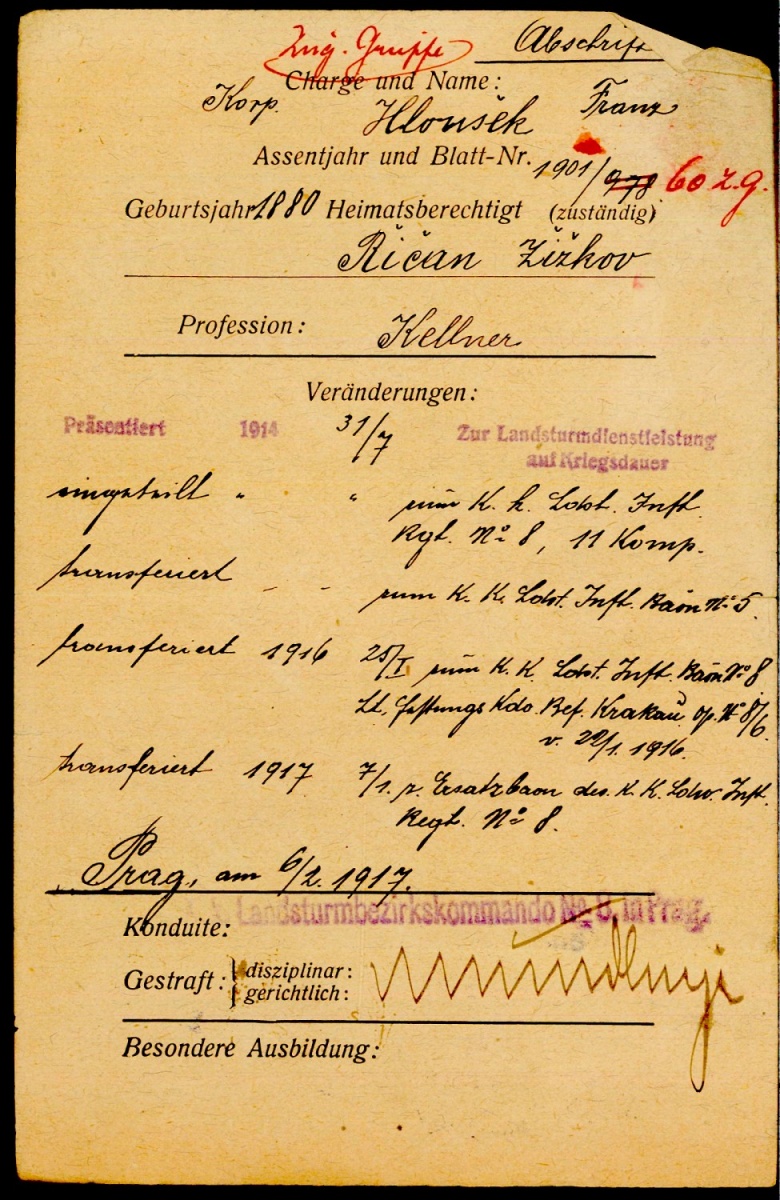 Abschrift
Charge und Name:
Korp. Hloušek Franz
Assentjahr und Blatt-Nr. 1901/978 60 z.g.
Geburtsjahr 1880 Heimatsberechtigt (zuständig)
Řičan Žižkov
Profession: Kellner
Veränderungen:
Präsentiert 1914 31/7 Zur Landsturmdienstleistung
auf Kriegsdauer
eingeteilt " " zum K. k. Ldst. Inft.
Rgt. No 8, 11 Komp.
transferiert - - zum K. K. Ldst. Inft. Baon No 5.
transferiert 1916 25/I zum K. K. Ldst. Inft. Baon No 8
Lt. Festungs Kdo. Bef. Krakau op. No 8/6
v. 22/1. 1916.
transferiert 1917 7/1. z. Ersatzbaon des K. K. Ldw. Inft.
Regt. No 8.
Prag, am 6/2. 1917.
Landsturmbezirkskommando No. 8, in Prag.
Konduite:
Gestraft: disziplinar:
gerichtlich:
Besondere Ausbildung: